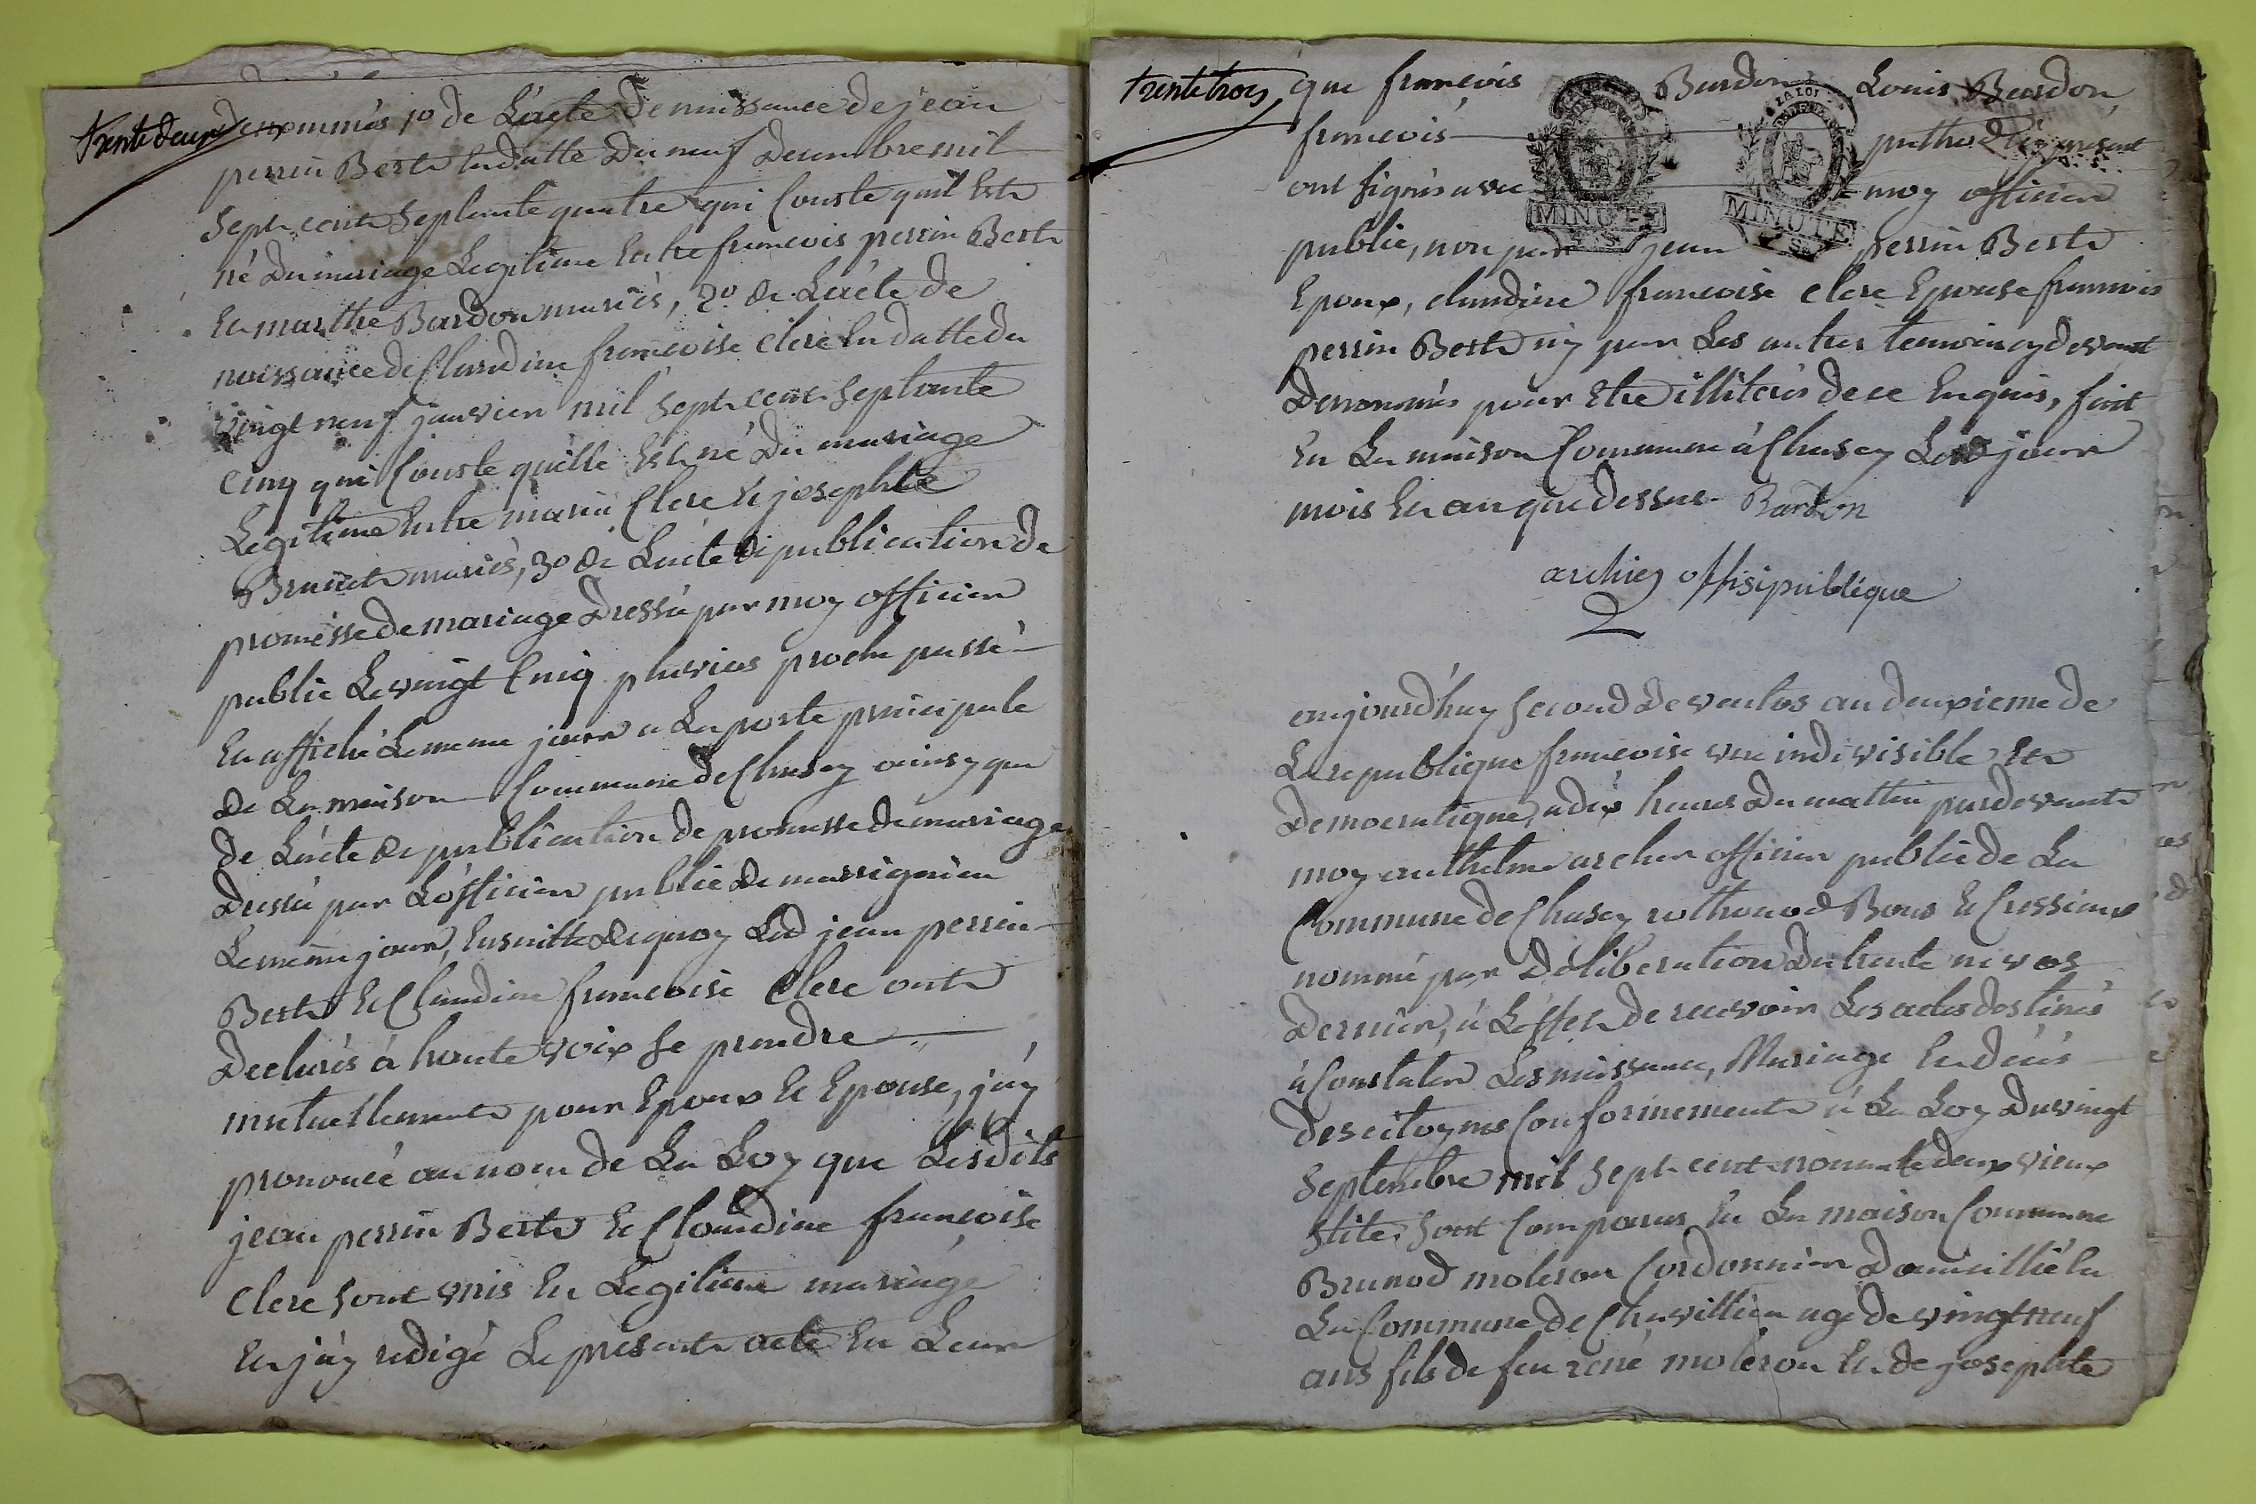 trente deux
denommés 1º de L'acte de naissance de jean
perrin Bert en datte du neuf decembre mil
sept cent septante quatre qui Conste quil Est
né du mariage Legitime Entre francois perrin Bert
Et marthe Bardon mariés, 2º de L'acte de
naissance de Claudine francoise clere En datte du
vingt neuf janvier mil sept cent septante
cinq qui Conste quelle Est né du mariage
Legitime Entre marin Clere Et josephte
Brunet mariés, 3º de L'acte de publication de
promèsse de mariage dressée par moy officier
public Le vingt Cinq pluvios proche passé
Et affiché Le meme jour a La porte principale
de La maison Commune de Chasey ainsy que
de L'acte de publication de promesse de mariage
dressé par L'officier public de massignieu
Le meme jour, Ensuitte de quoy Led jean perrin
Bert Et Claudine francoise Clere ont
declarés à haute voix se prendre
mutuellement pour Epoux Et Epouse, j'ay
prononcé au nom de La Loy que Lesdits
jean perrin Bert Et Claudine francoise
Clere sont unis En Legitime mariage
Et j'ay redigé Le present acte En Leur
trente trois
que francois Bardon Louis Bardon,
francois
ont signés avec moy officier
public, non par jean perrin Bert
Epoux, claudine francoise clere Epouse francois
perrin Bert ny par Les autres temoins cy devant
denommés pour Etre illiterés de ce Enquis, fait
En La maison Commune à Chasey Les jour
mois Et an que dessus Bardon
archer offisipublique
LA LOI
MINUTE
MINUTE
aujourd'huy second de ventos an deuxieme de
La republique francoise une indivisible Et
Democratique, a dix heures du mattin pardevant
moy anthelme archer officier public de La
Commune de Chasey rothonod Bons Et Cressieux
nommé par Deliberation du trente nivos
dernier, à L'effet de recevoir Les actes destinés
à Constater Les naissance, Mariage Et décés
des citoyens Conformement à La Loy du vingt
Septembre mil sept cent nonante deux vieux
stile, sont Comparus En La maison Commune
Brunod moleron Cordonnier domicillié En
La Commune de Chavillieu agé de vingt neuf
ans fils de feu rené moleron Et de josephte